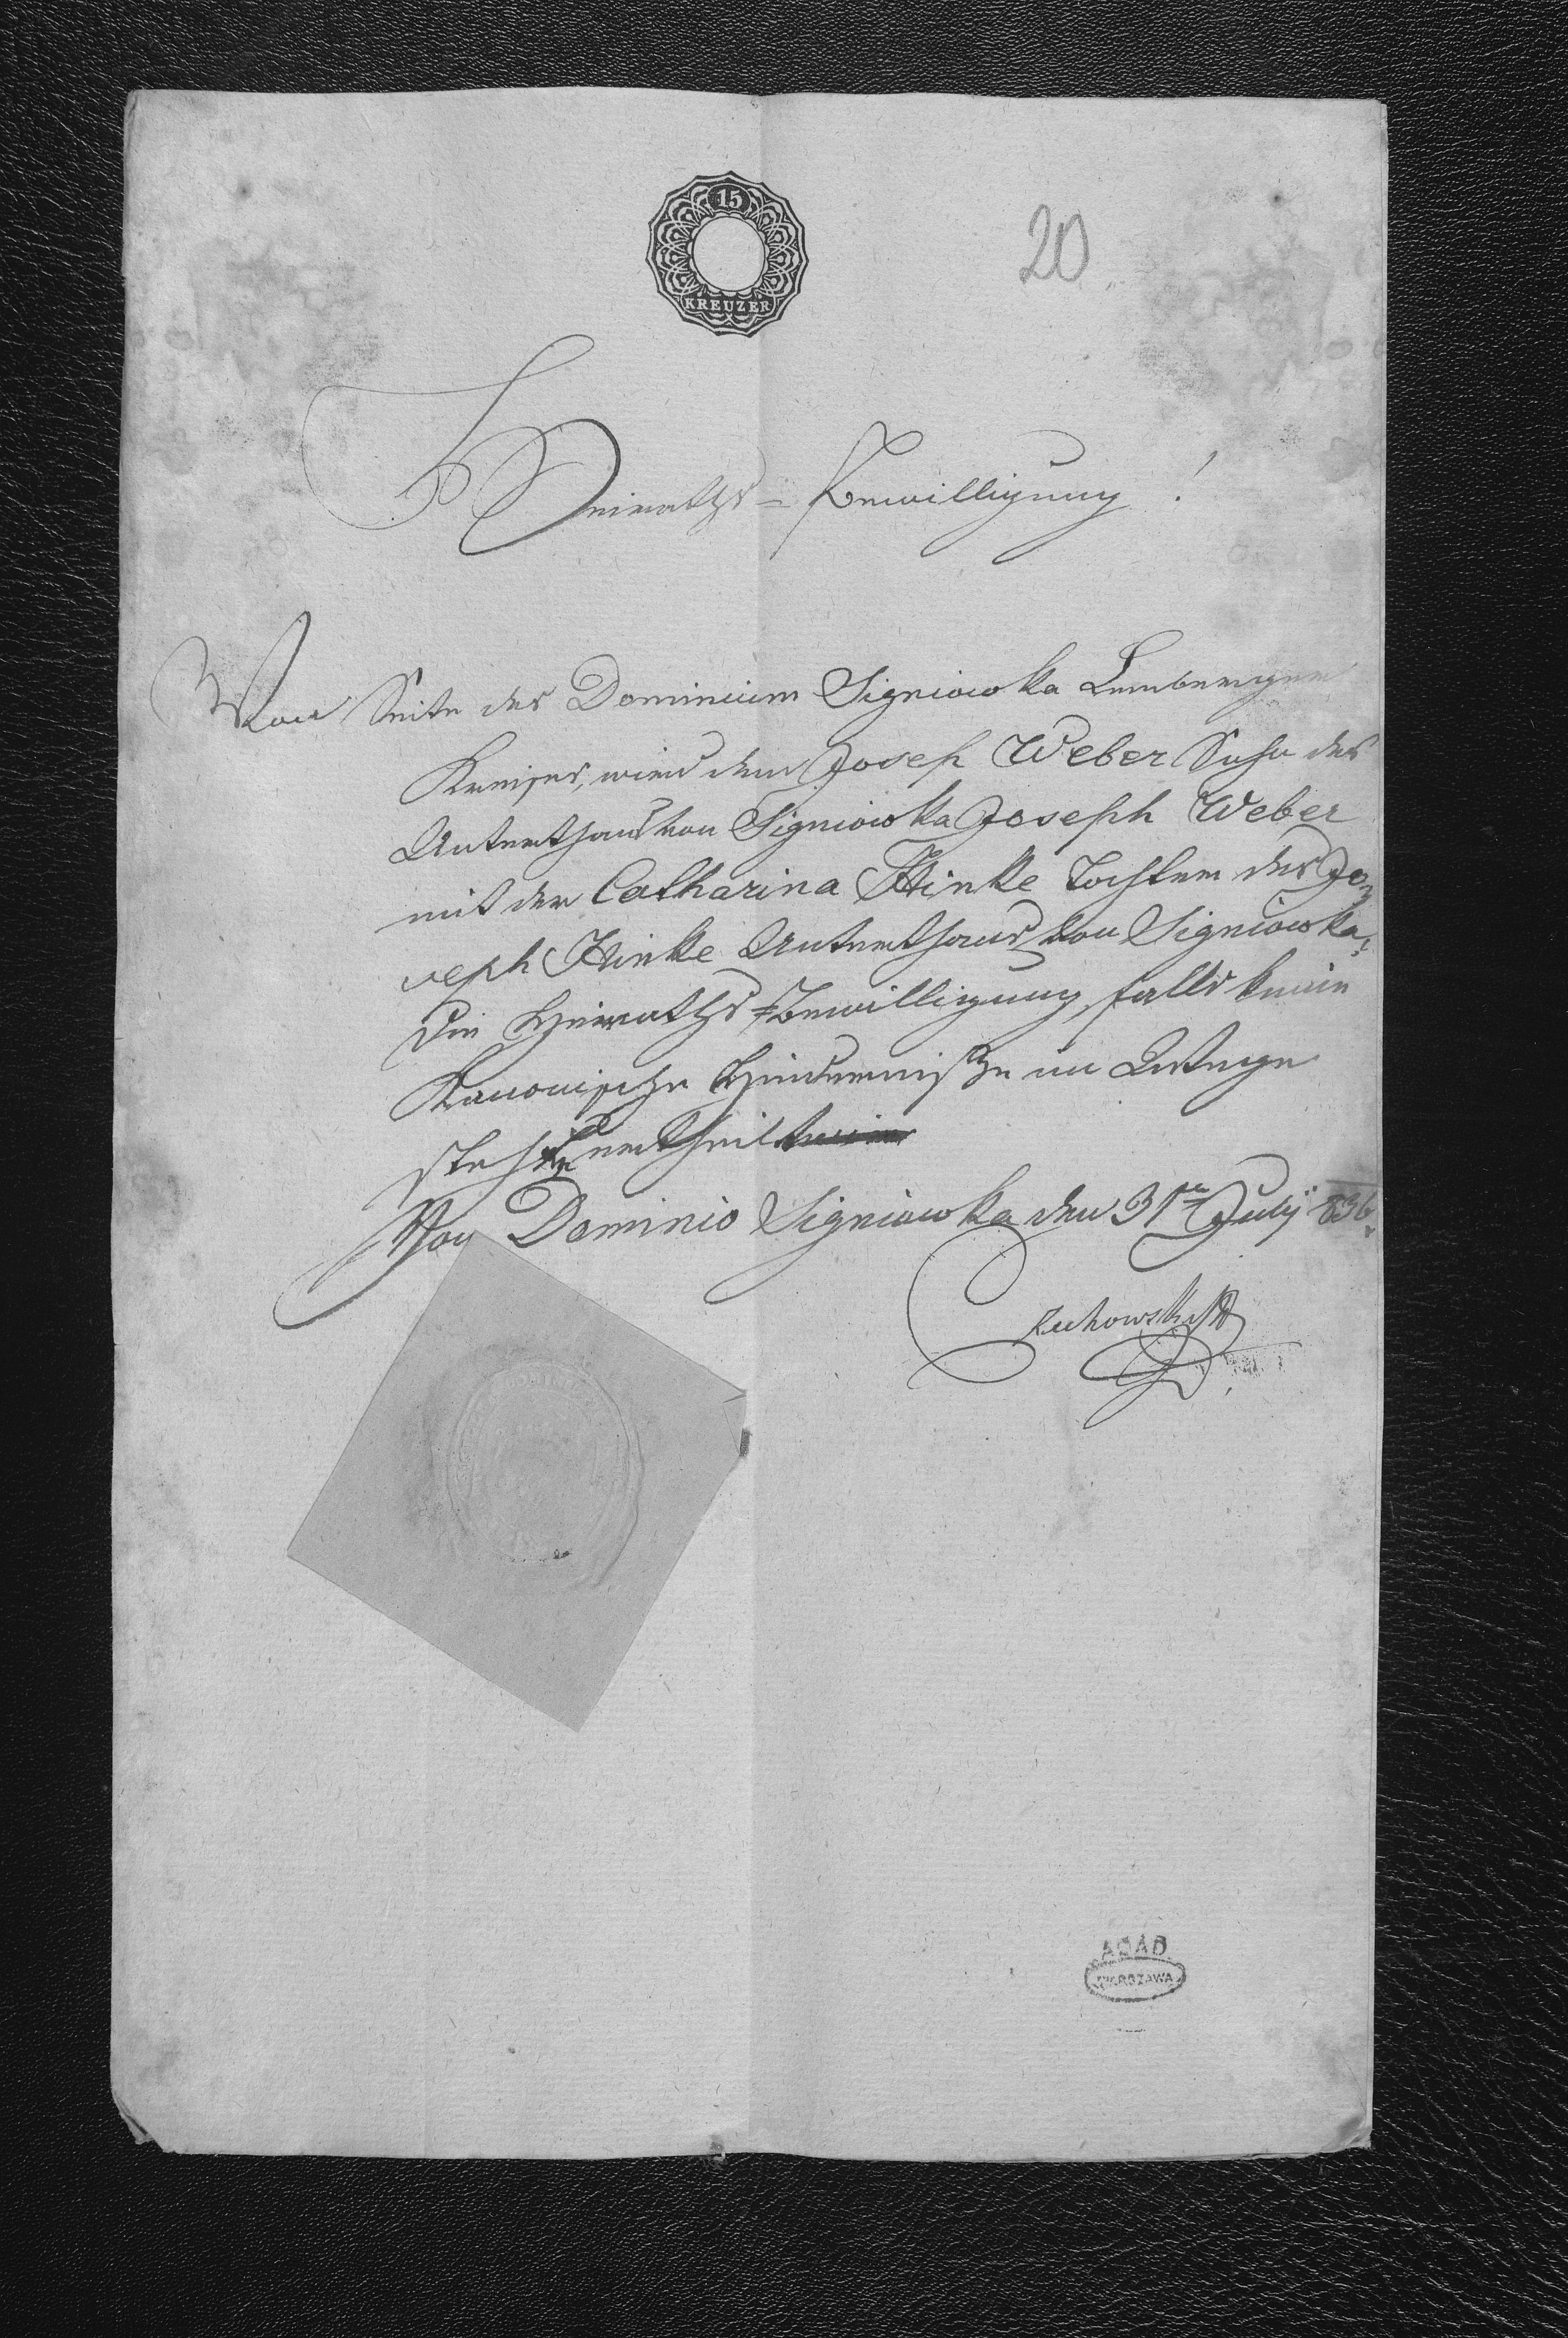 15
KREUZER
20
Heiraths=Bewilligung!
Von Seite des Dominium Signiowka Lemberger
Kreises, wird dem Joseph Weber Sohn des
Unterthans von Signiowka Joseph Weber
mit der Catharina Hinke Tochter des Jo=
seph Hinke Unterthans von Signiowka,
die Heiraths=Bewilligung, falls keine
Kanonische Hindernisse im Wege
stehen ertheilt
Von Dominio Signiowka den 31ten July 836.
AGAD
WARSZAWA